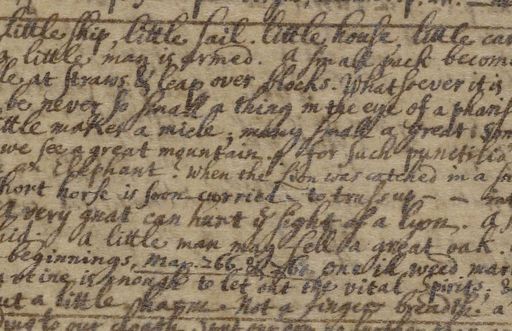 little ship, little sail. little house, little car
little man is armed. A small pack becom
le at straws & leap over blocks. Whatsoever it is
be never so small a thing in the eye of a pharis
ittle makes a micle; many small a great. Som
we see a great mountain. for such punctilio
an Elephant. When the Lion was catched in a sn
short horse is soon curried - to truss up
A very gnat can hurt ye sight of a lyon. A
A little man may fell a great oak.
beginnings, Mar. 266. & 260. one ill weed marr
veine is enough to let out the vital spirits, &
ut a little Not a fingers breadth. a